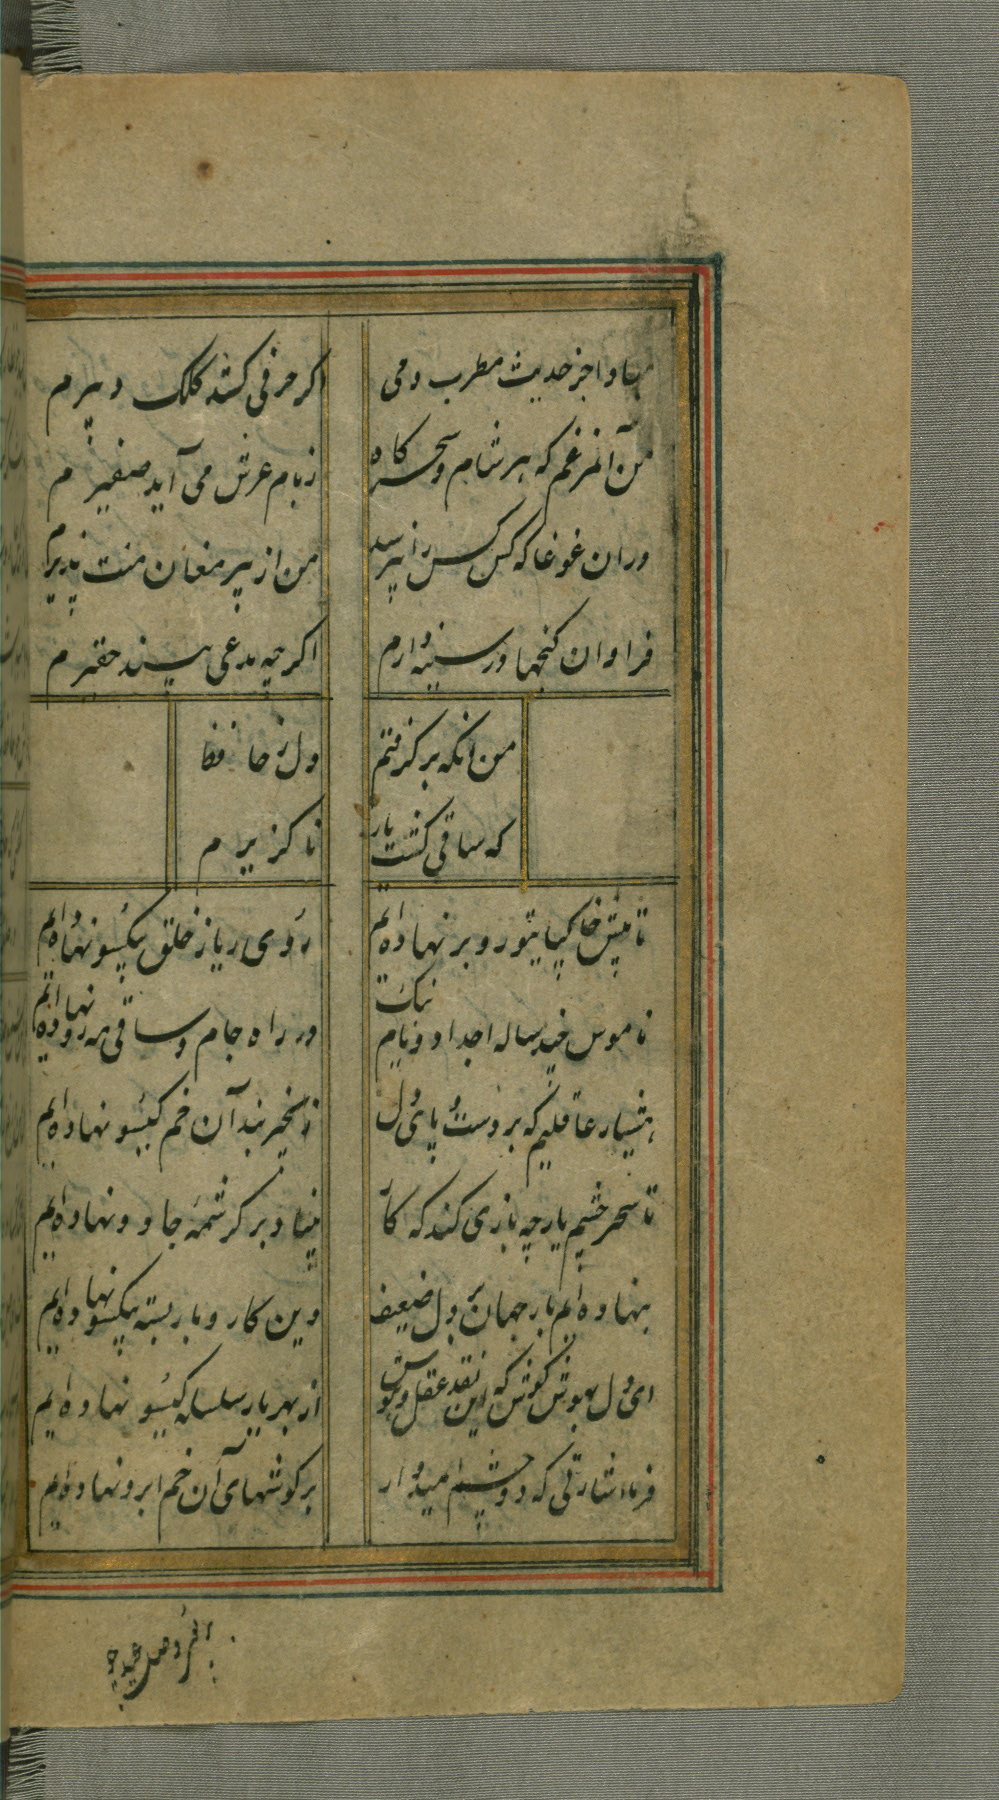 مبادا جز حدیث مطرب و می اگر حرفی کشد کلک دبیرم
من آنمرغم که هر شام و سحرگاه ز بام عرش می آید صفیرم
دران غوغا که کس کس را نپرسد من از پیر مغان منت پذیرم
فراوان کنجها در سینه دارم اگرچه مدعی بیند حقیرم
من انکه برگرفتم دل ز حافظ
که ساقی گشت یار ناگزیرم
تا پیش خاکپایتو رو بر نهاده‌ایم روی ریا ز خلق بیکسو نهاده‌ایم
ناموس چند ساله اجداد و نیک نام در راه جام و ساقی مه رو نهاده‌ایم
هشیار عاقلیم که بر دست و پای دل زنجیر بند آن خم گیسو نهاده‌ایم
تا سحر چشم یار چه بازی کند که کار بنیاد بر کرشمه جادو نهاده‌ایم
بنهاده‌ایم بار جهان بر دل ضعیف وین کار و بار بسته بیکسو نهاده‌ایم
ای دل بهوش کوش که این نقد عقل و هوش از بهر یار سلسله گیسو نهاده‌ایم
فرما اشارتی که دو چشم امیدوار بر گوشهای آن خم ابرو نهاده‌ایم